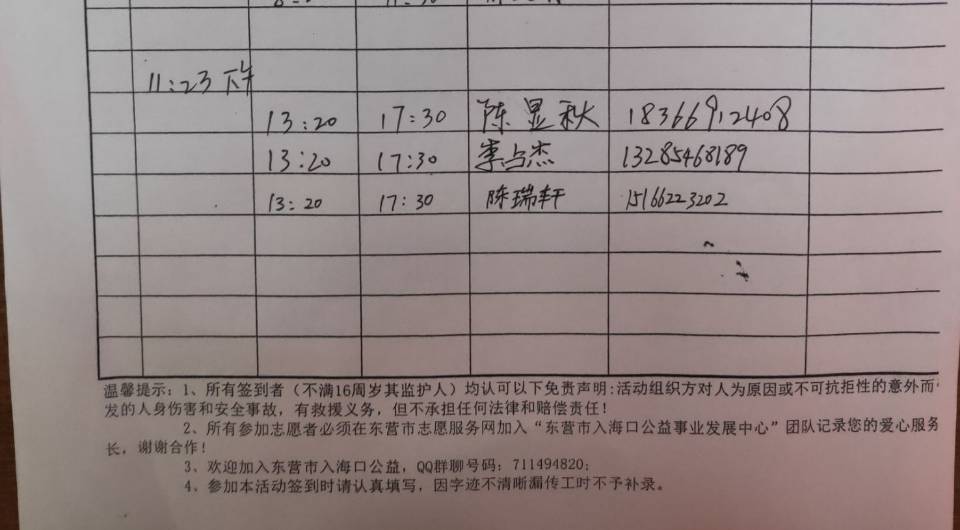 11:23 下午
13:20 17:30 陈显秋 18366912408
13:20 17:30 李占杰 13285468189
13:20 17:30 陈瑞轩 15166223202
温馨提示：1、所有签到者（不满16周岁其监护人）均认可以下免责声明：活动组织方对人为原因或不可抗拒性的意外而
发的人身伤害和安全事故，有救援义务，但不承担任何法律和赔偿责任！
2、所有参加志愿者必须在东营市志愿服务网加入“东营市入海口公益事业发展中心”团队记录您的爱心服务
长，谢谢合作！
3、欢迎加入东营市入海口公益，QQ群聊号码：711494820；
4、参加本活动签到时请认真填写，因字迹不清晰漏传工时不予补录。